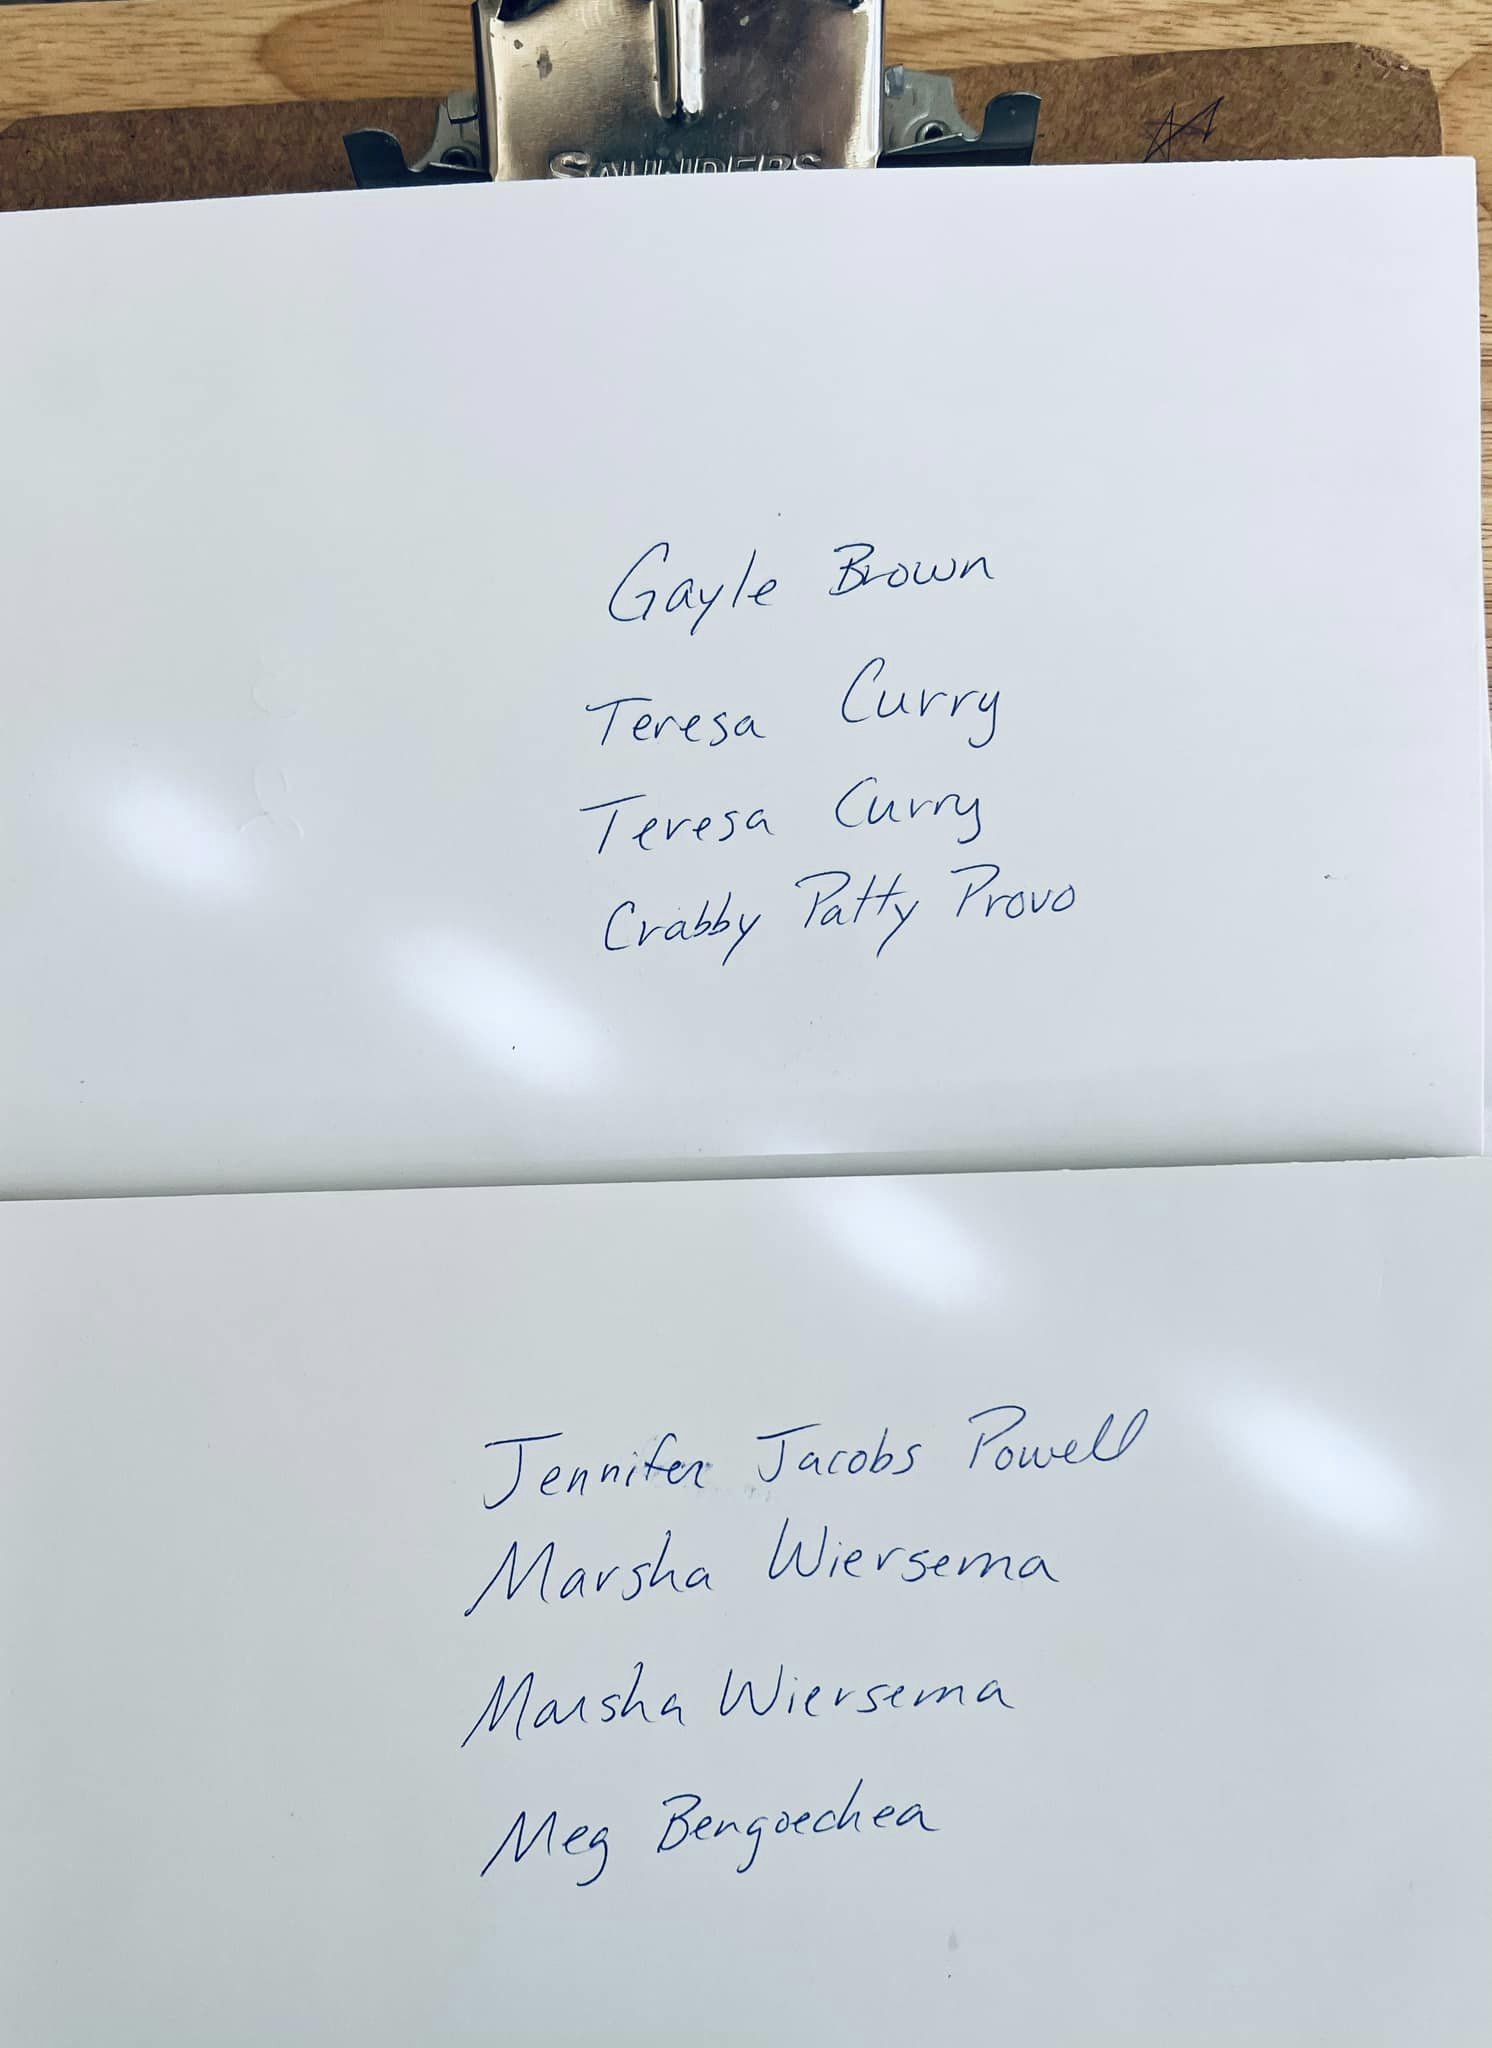 SAUNDERS
Gayle Brown
Teresa Curry
Teresa Curry
Crabby Patty Provo
Jennifer Jacobs Powell
Marsha Wiersema
Marsha Wiersema
Meg Bengoechea